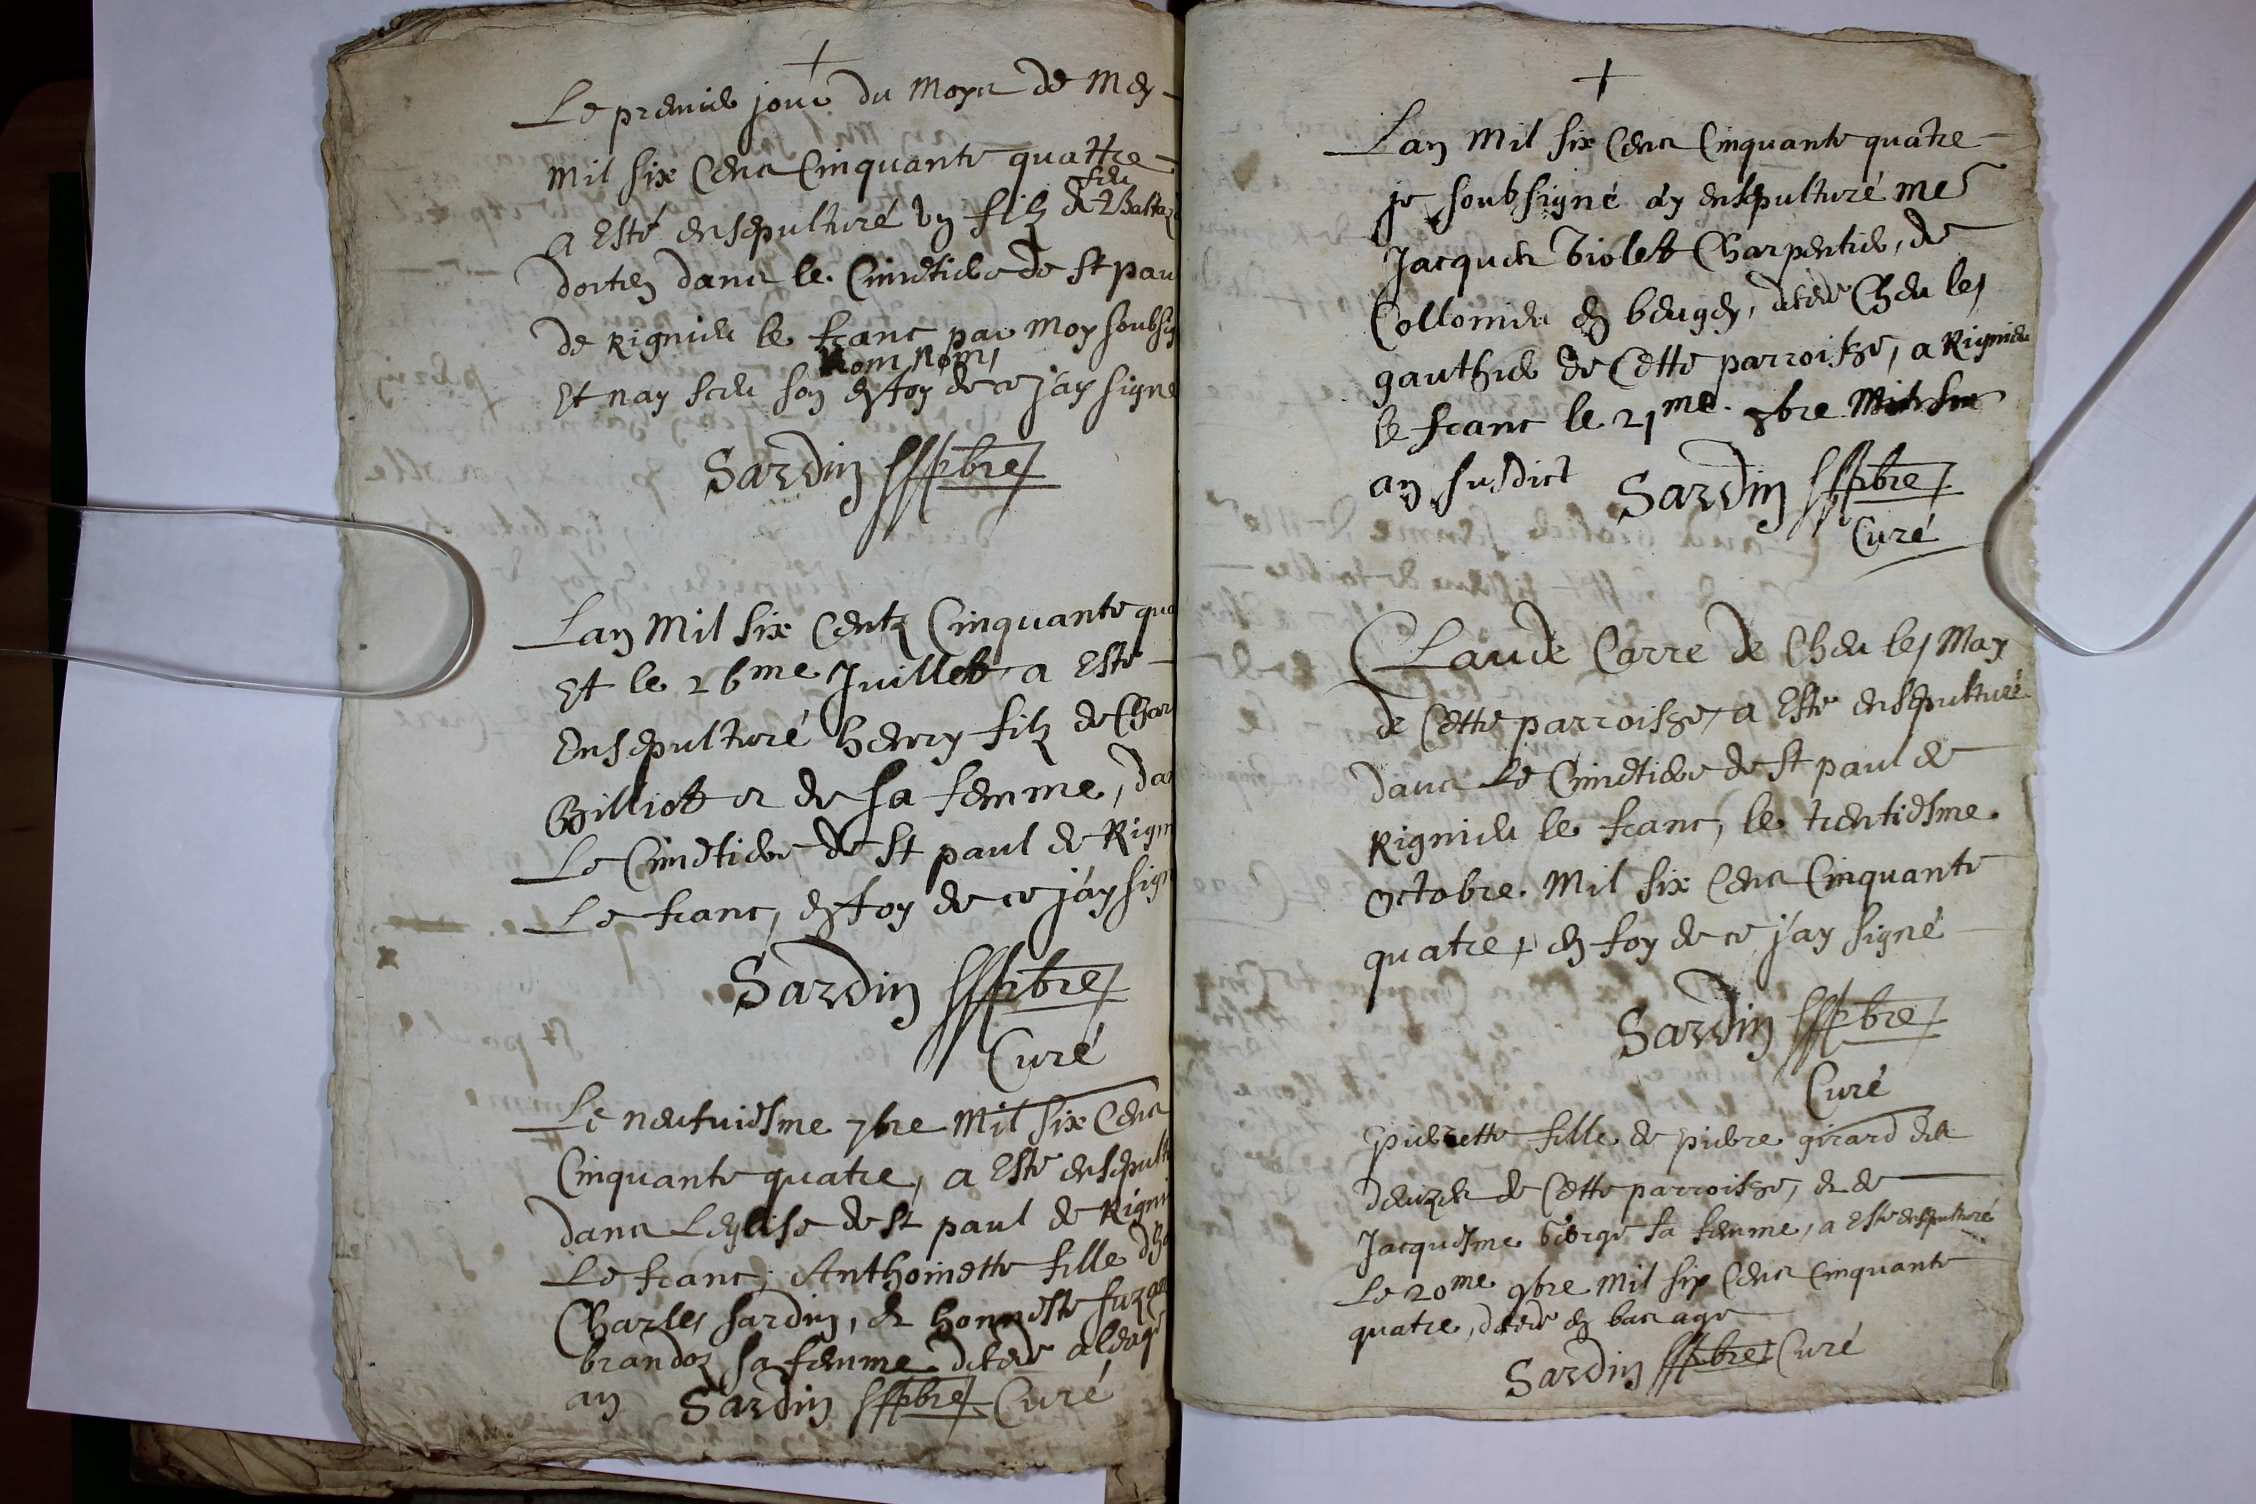 Le premier jour du moys de mey
mil six cens cinquante quattre
a esté ensepulturé un filz de feu Baltaz
dortin dans le cimetiere de st pau
de Rignieu le franc par moy soubsig
nom nom,
et nay sceu son en foy de ce j'ay signé
Sardin pbre
Lan mil six centz cinquante qua
et le 26me Juillet a esté
ensepulturé henry filz de Char
Billiot et de sa femme, dan
Le cimetiere de st paul de Rign
Le franc, en foy de ce j'ay sign
Sardin pbre
Curé
Le neufviesme 7bre mil six cens
cinquante quatre, a esté ensepult
dans Leglise de st paul de Rigni
Le franc, Anthoinette fille d'h
Charles sardin, et honneste suzan
brandoz sa femme dcedée a leage
an Sardin pbre Curé
Lan mil six cens cinquante quatre
je soubsigné ay ensepulturé me
Jacques violet Charpentier, de
Collomieu en beugey, dcedé cheu les
gauthier de cette parroisse, a Rignieu
le franc le 21me 8bre
an susdict Sardin pbre
Curé
Claude Carre de cheu les May
de cette parroisse, a esté ensepulturé
dans Le cimetiere de st paul de
Rignieu le franc, le trentiesme
octobre mil six cens cinquante
quatre, en foy de ce j'ay signé
Sardin pbre
Curé
pierrette fille de pierre girard dit
de cette parroisse, et de
Jacquesme sa femme, a esté ensepulturé
Le 20me 9bre mil six cens cinquante
quatre, dcedée en bas age
Sardin pbre Curé